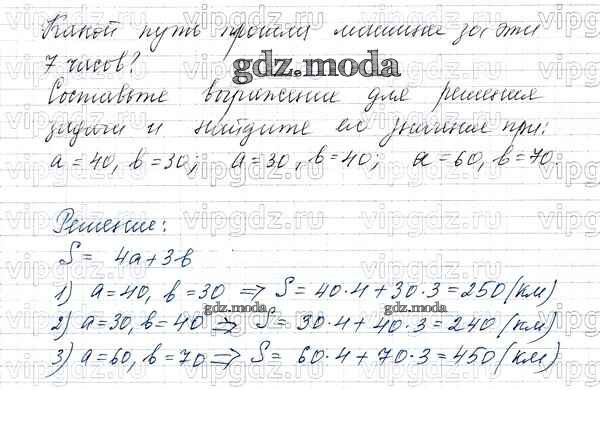 Какой путь прошла машина за эти
7 часов?
gdz.moda
Составьте выражение для решения
задачи и найдите его значение при:
a = 40, b = 30; a = 30, b = 40; a = 60, b = 70.
Решение:
S = 4a + 3b
1) a = 40, b = 30 ⇒ S = 40·4 + 30·3 = 250 (км)
gdz.moda gdz.moda
2) a = 30, b = 40 ⇒ S = 30·4 + 40·3 = 240 (км)
3) a = 60, b = 70 ⇒ S = 60·4 + 70·3 = 450 (км)
vipgdz.ru